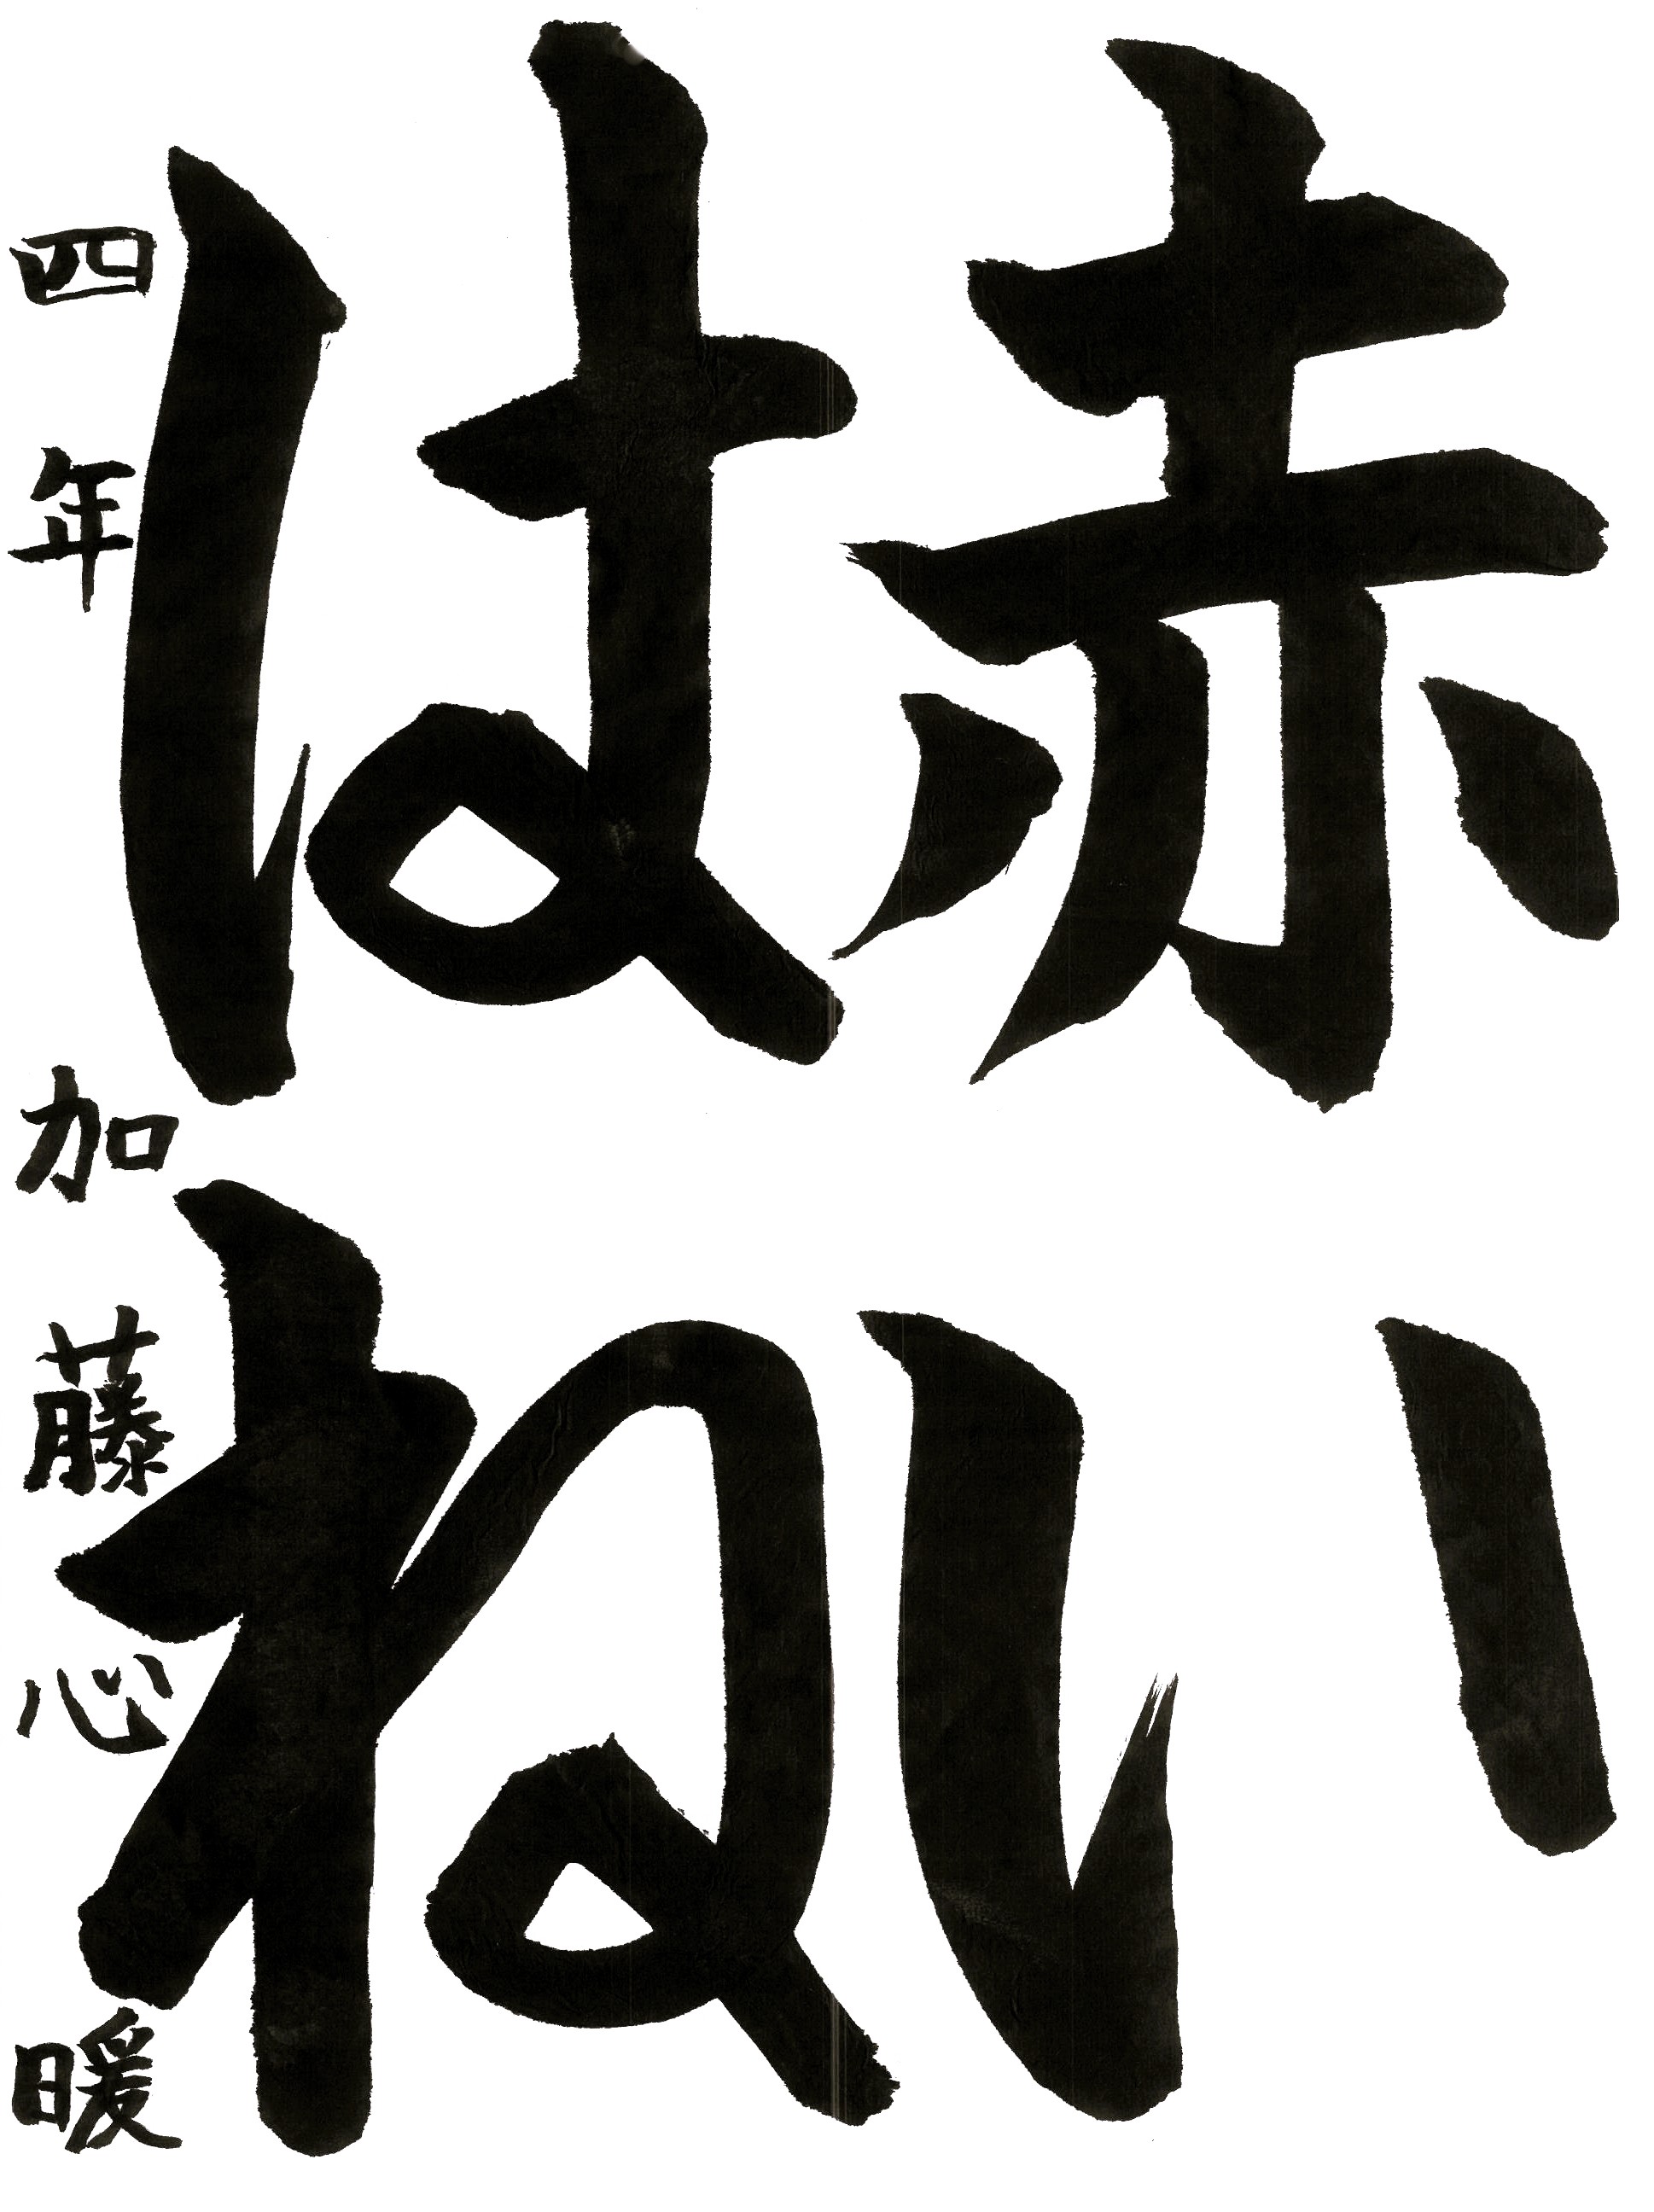 赤い
はね
四年 加藤心暖